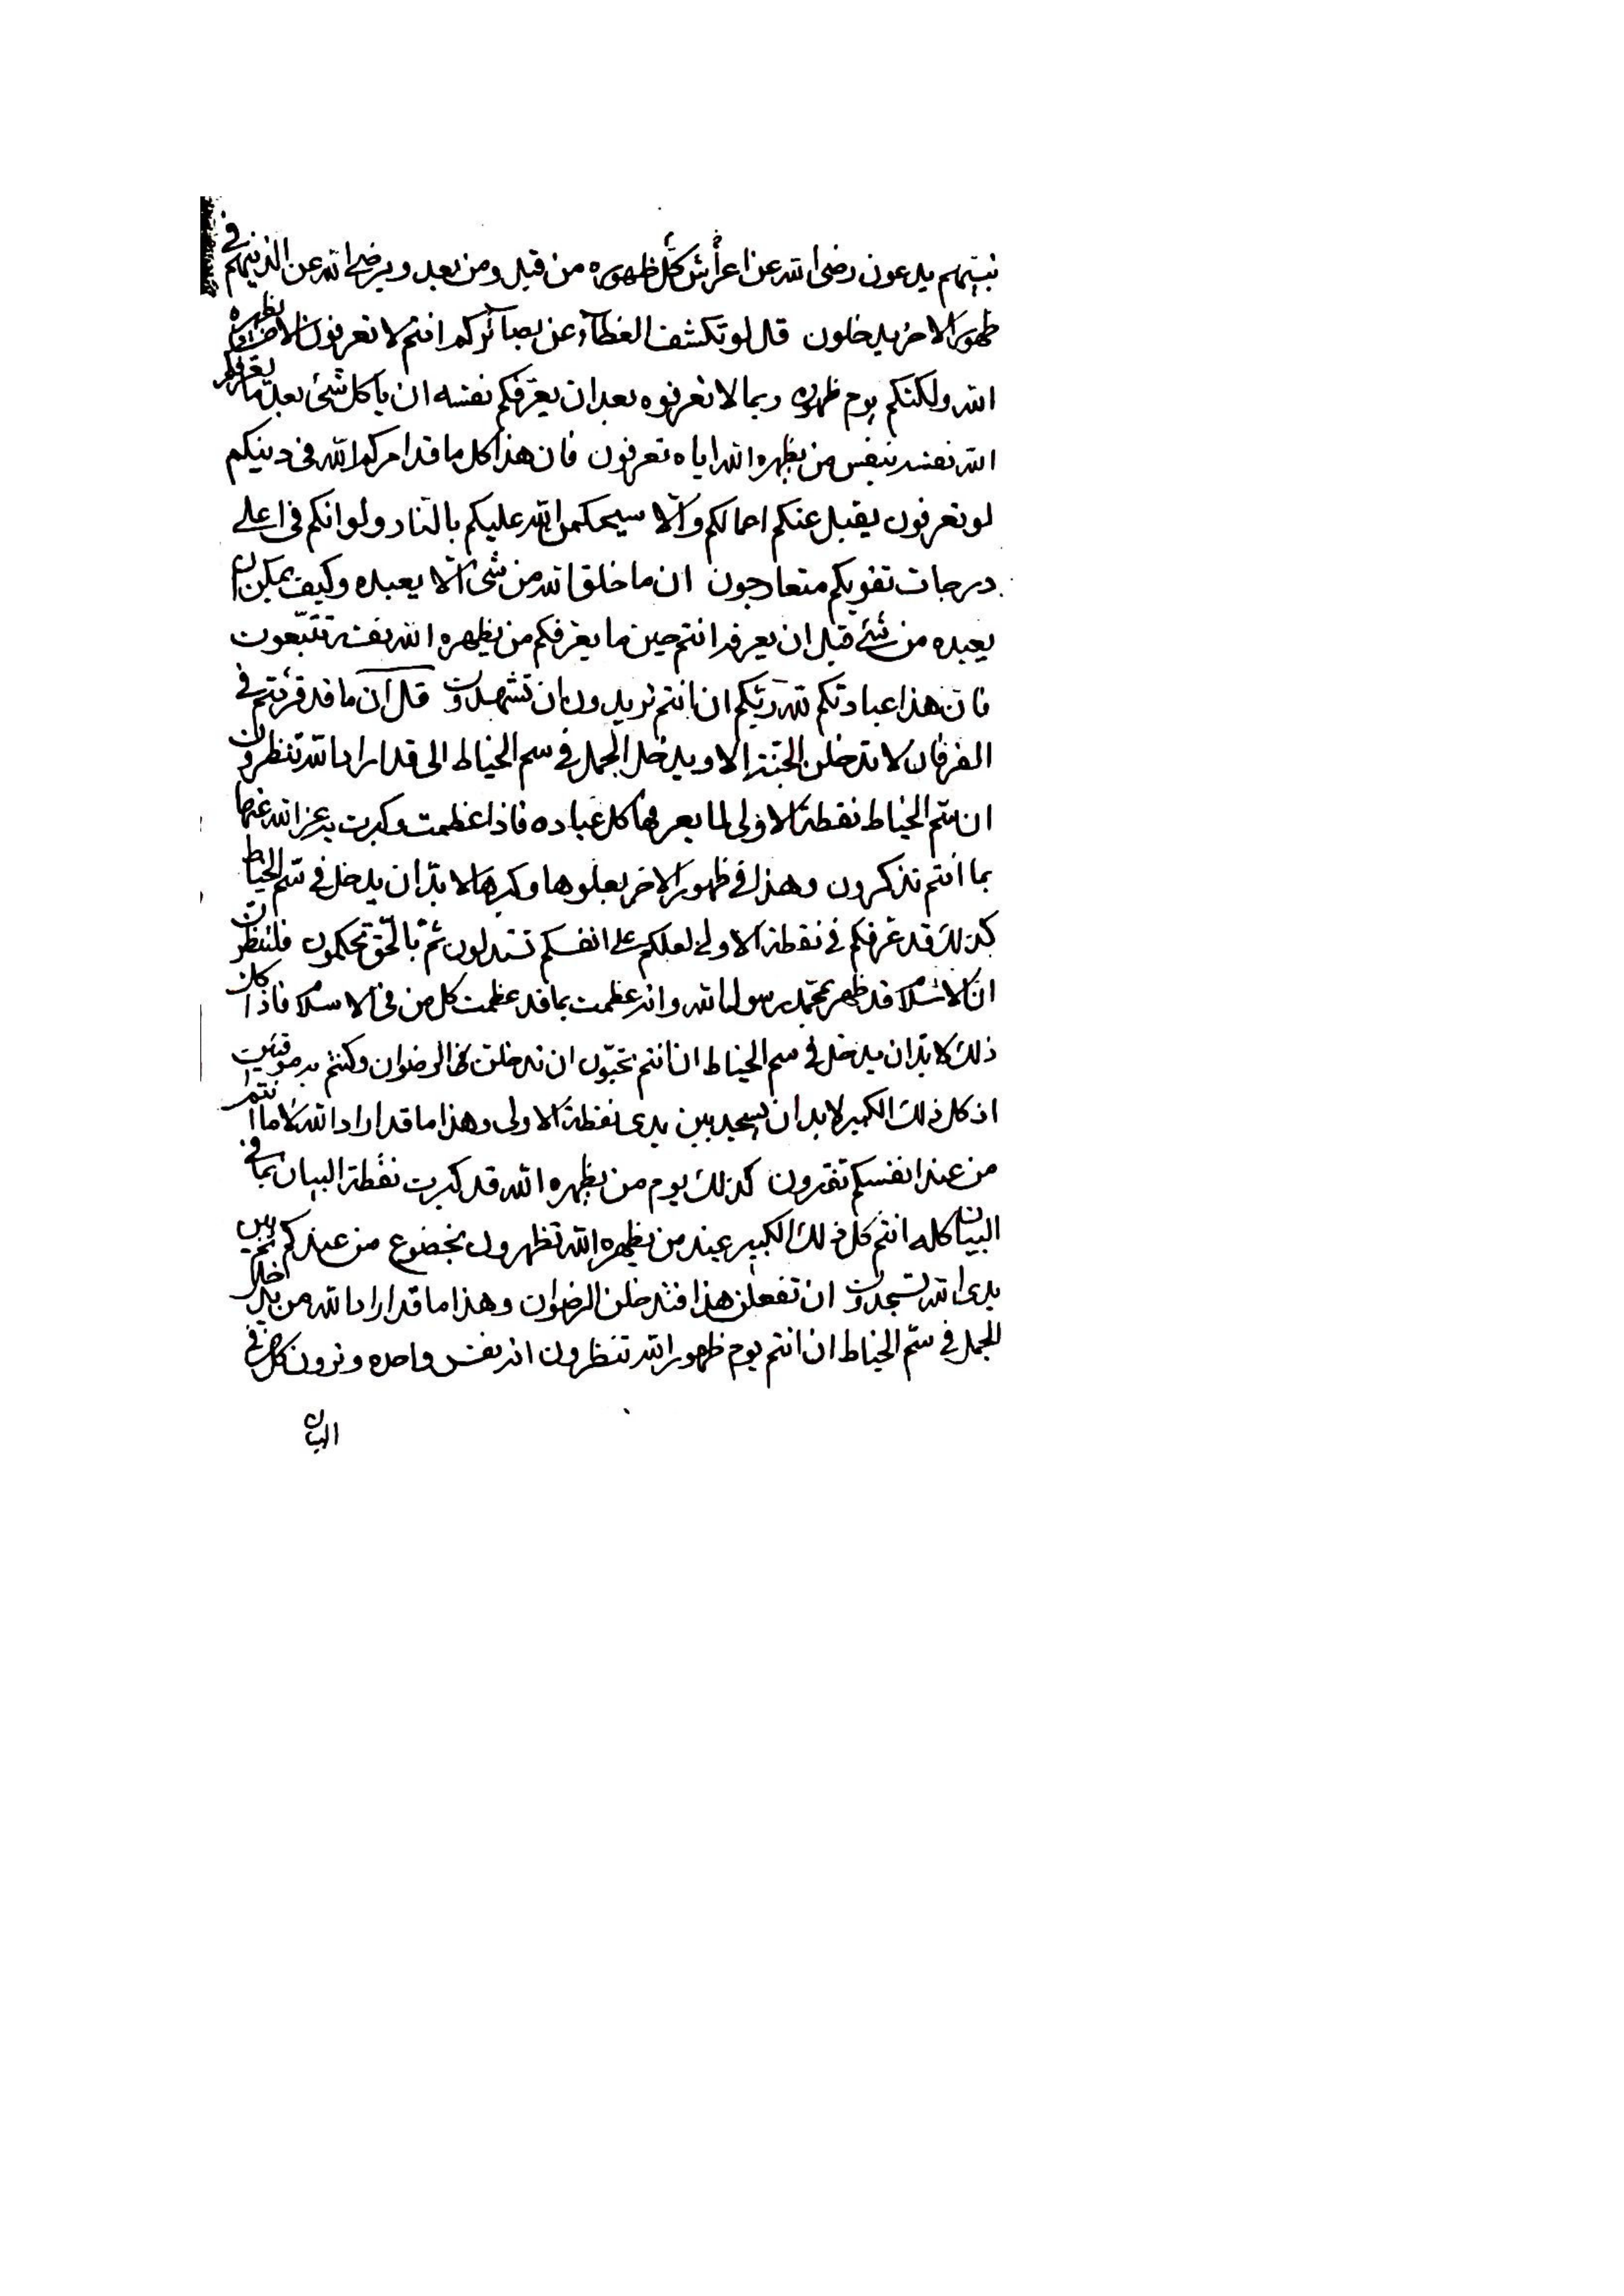 نبيّهم يدعون رضى الله عن اعراش كل ظهوره من قبل ومن بعد ويرضى الله عن الذينهم في
ظهور الاخر يدخلون قل لو تكشف الغطاء عن بصائركم انتم لا تعرفون الا من يظهره
الله ولكنكم يوم ظهوره ربما لا تعرفوه بعد ان يعرّفكم نفسه ان يا كل شئ بعد ما يعرفكم
الله نفسه بنفس من يظهره الله اياه تعرفون فان هذا كل ما قد امركم الله في دينكم
لو تعرفون يقبل عنكم اعمالكم والّا سيحكمن الله عليكم بالنار ولو انكم في اعلى
درجات تقويكم متعارجون ان ما خلق الله من شئ الّا يعبده وكيف يمكن ان
يعبده من شئ قبل ان يعرفه انتم حين ما يعرفكم من يظهره الله نفسه تتّبعون
فان هذا عبادتكم لله ربّكم ان انتم تريدون ان تشهدون قل ان ما قد قرئتم في
الفرقان لا تدخلن الجنة الا ويدخل الجمل في سم الخياط الى قد اراد الله تنظرون
ان سّم الخياط نقطة الاولى لما يعرفها كل عباده فاذا عظمت وكبرت يعز الله عنها
بما انتم تذكرون وهذا في ظهور الاخر بعلوها وكبرها لا بدّ ان يدخل في سّم الخياط
كذلك قد عرفكم في نقطة الاولى لعلكم على انفسكم تستدلون ثم بالحّق تحكمون فلتنظرن
ان الاسلام قد ظهر بمحّمد رسول الله وانه عظمت بما قد عظمت كل من في الاسلام فاذا كان
ذلك لا بدّ ان يدخل في سم الخياط ان انتم تحبّون ان تدخلن في الرضوان وكنتم به موقنين
اذ كل ذلك الكبير لا بد ان يسجد بين يدى نقطة الاولى وهذا ما قد اراد الله لا ما انتم
من عند انفسكم تفترون كذلك يوم من يظهره الله قد كبرت نقطة البيان بما في
البيان كله انتم كل ذلك الكبير عند من يظهره الله تظهرون بخضوع من عندكم ثم بين
يدى الله تسجدون ان تفعلن هذا فتدخلن الرضوان وهذا ما قد اراد الله من يدخل
الجمل في سّم الخياط ان انتم يوم ظهور الله تنظرون انه نفس واحده وترون كل من في
البيان